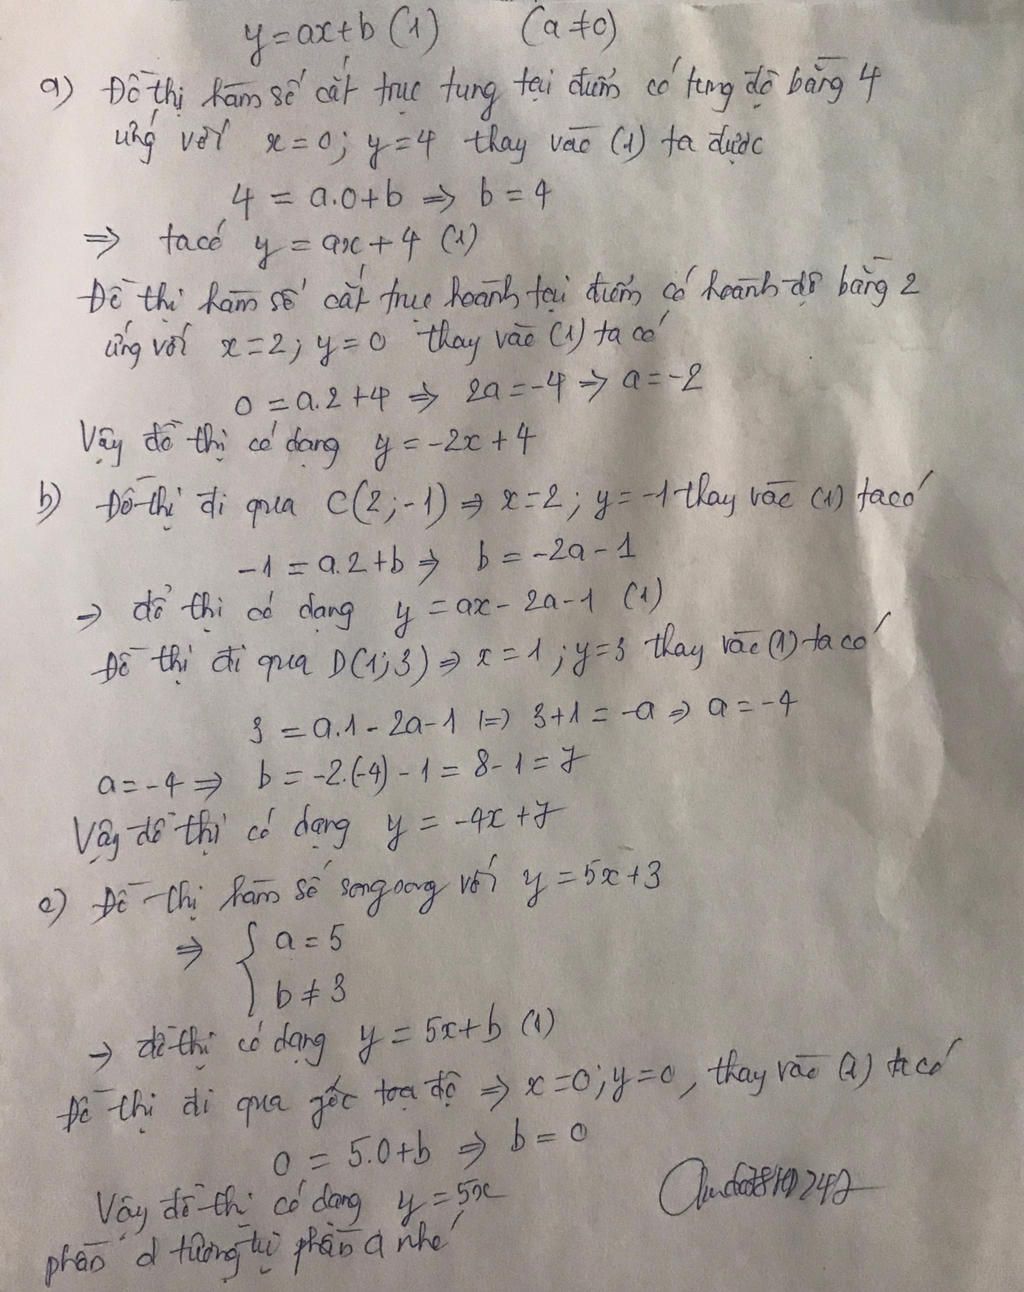 y = ax + b (1) (a ≠ 0)
a) Đồ thị hàm số cắt trục tung tại điểm có tung độ bằng 4
ứng với x = 0; y = 4 thay vào (1) ta được
4 = a.0 + b ⇒ b = 4
⇒ ta có y = ax + 4 (1)
Đồ thị hàm số cắt trục hoành tại điểm có hoành độ bằng 2
ứng với x = 2; y = 0 thay vào (1) ta có
0 = a.2 + 4 ⇒ 2a = -4 ⇒ a = -2
Vậy đồ thị có dạng y = -2x + 4
b) Đồ thị đi qua C(2;-1) ⇒ x = 2; y = -1 thay vào (1) ta có
-1 = a.2 + b ⇒ b = -2a - 1
→ đồ thị có dạng y = ax - 2a - 1 (1)
Đồ thị đi qua D(1;3) ⇒ x = 1; y = 3 thay vào (1) ta có
3 = a.1 - 2a - 1 (=) 3 + 1 = -a ⇒ a = -4
a = -4 ⇒ b = -2.(-4) - 1 = 8 - 1 = 7
Vậy đồ thị có dạng y = -4x + 7
c) Đồ thị hàm số song song với y = 5x + 3
⇒ { a = 5
b ≠ 3
→ đồ thị có dạng y = 5x + b (1)
Đồ thị đi qua gốc tọa độ ⇒ x = 0; y = 0, thay vào (1) ta có
0 = 5.0 + b ⇒ b = 0
Vậy đồ thị có dạng y = 5x
phần d tương tự phần a nhé